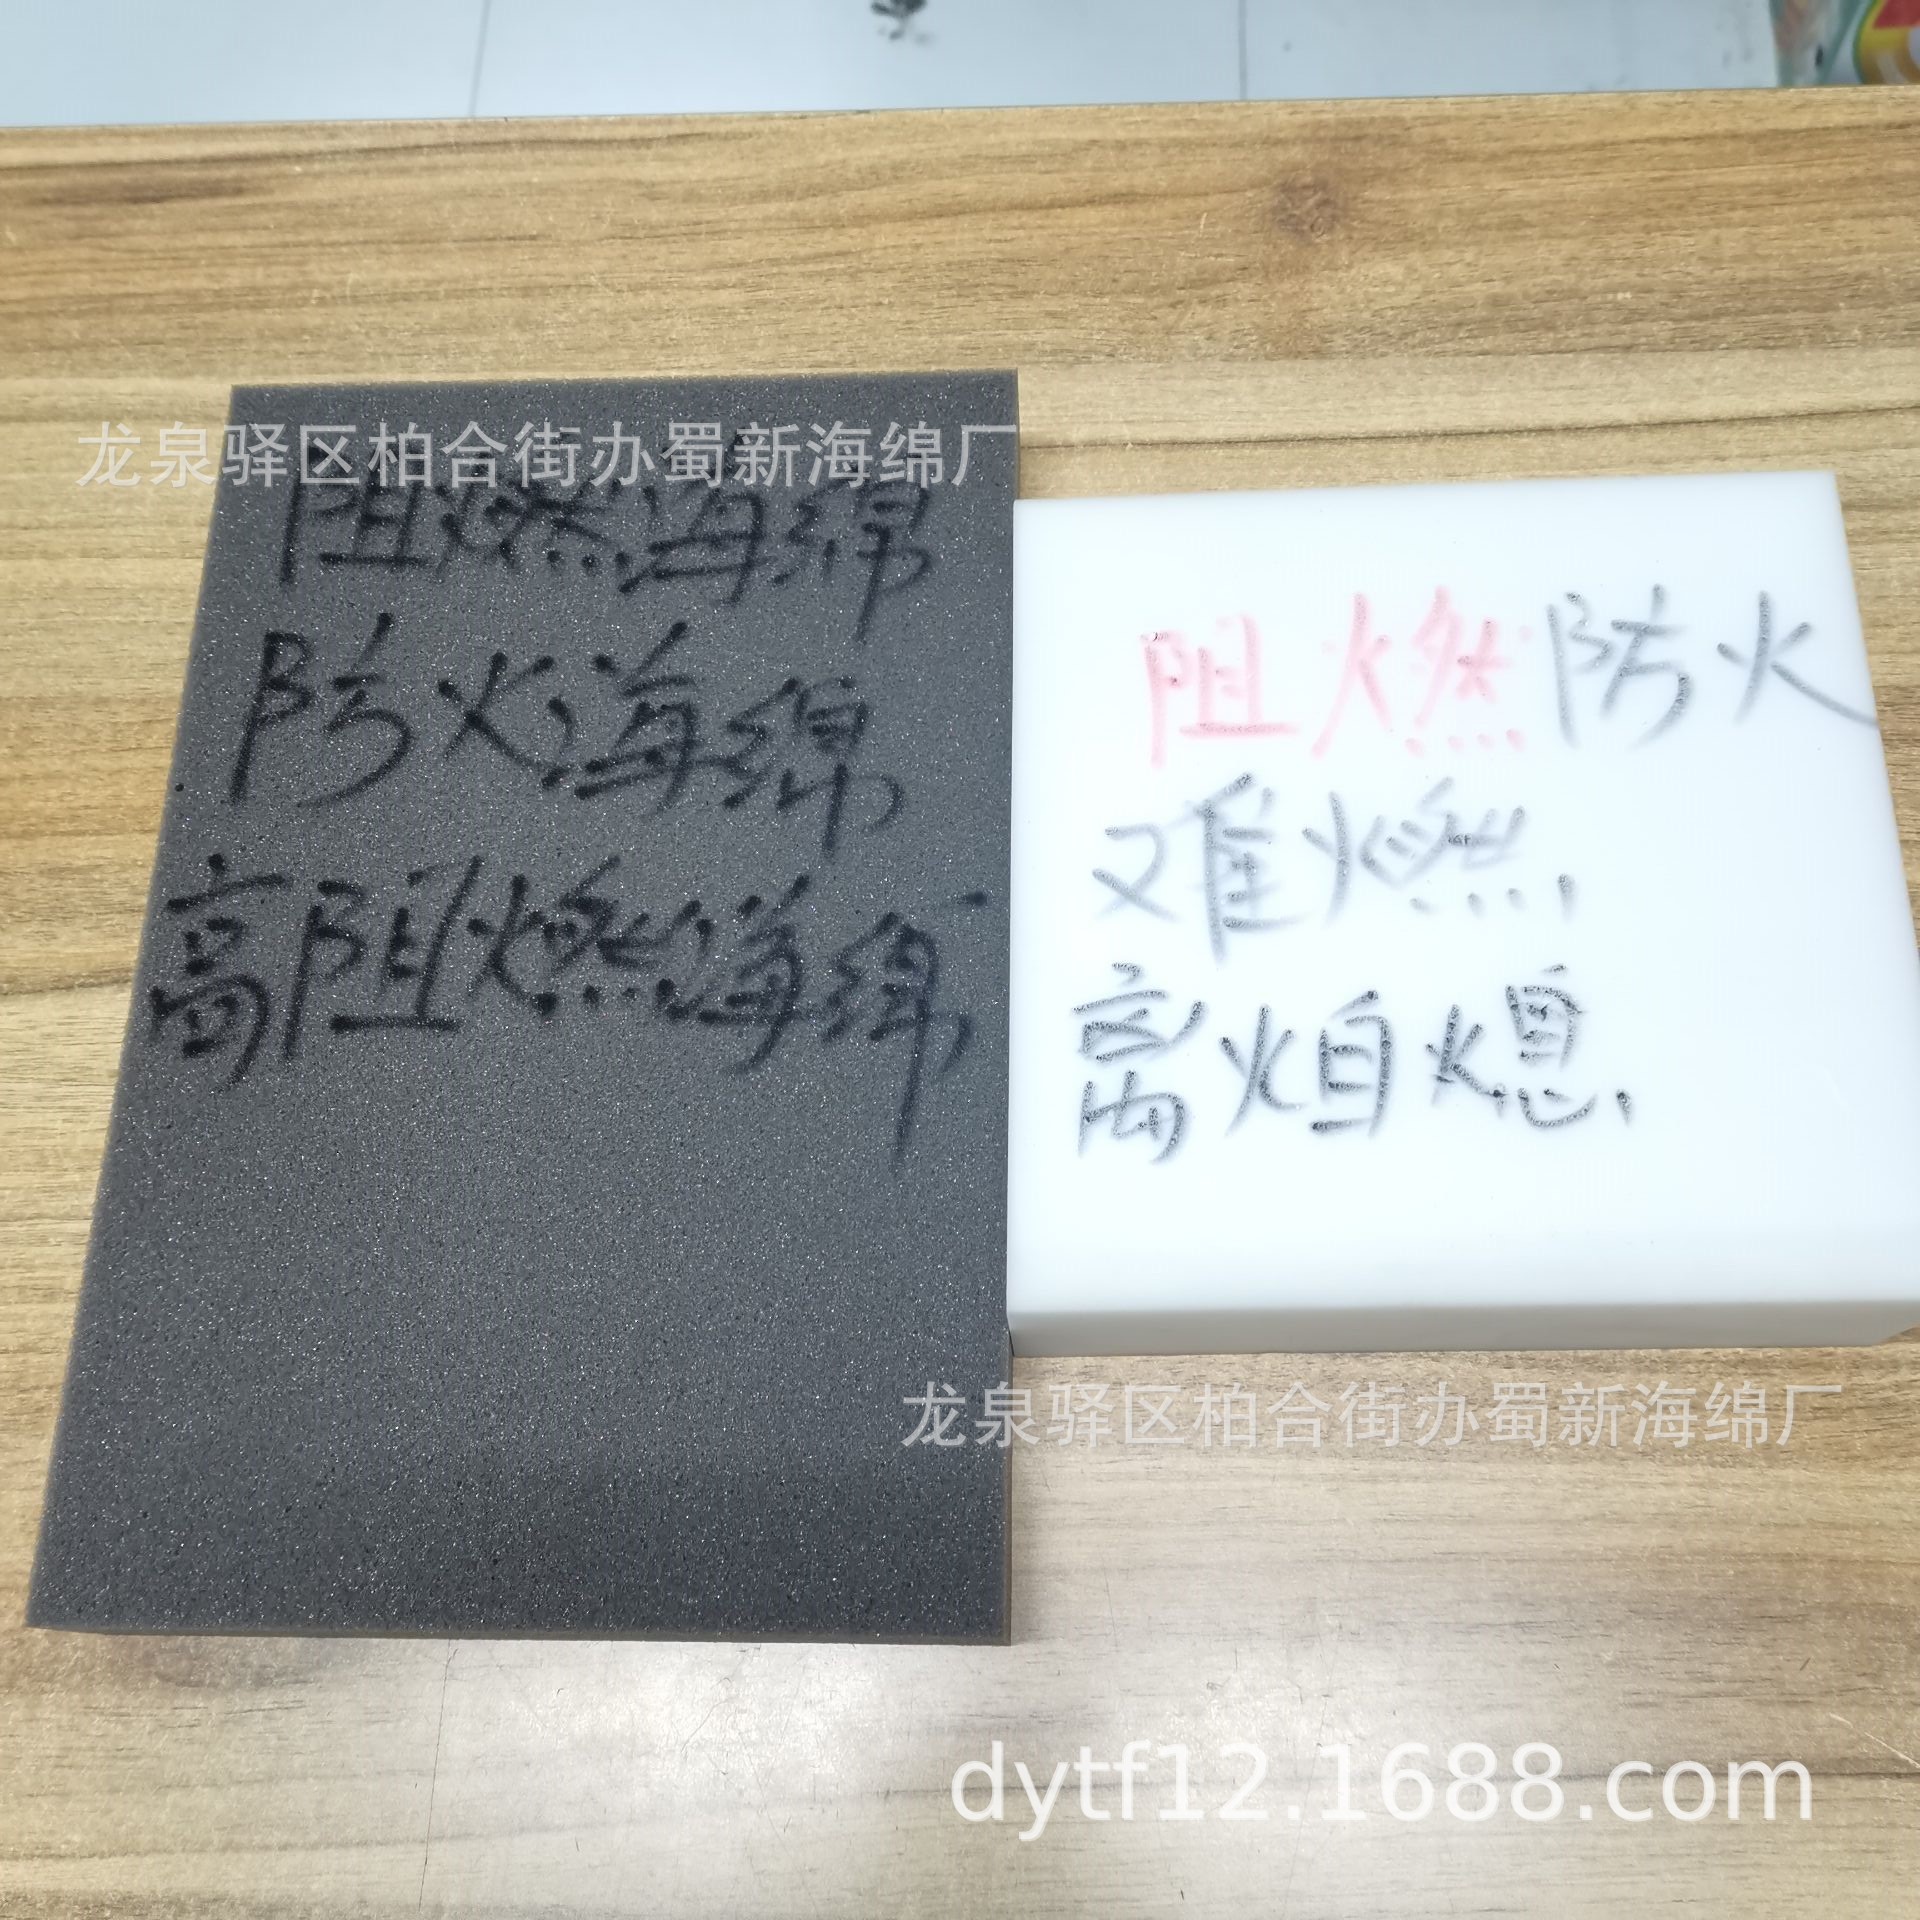 龙泉驿区柏合街办蜀新海绵厂
阻燃海绵
防火海绵
高阻燃海绵
阻燃防火
难燃
离火自熄
龙泉驿区柏合街办蜀新海绵厂
dytf12.1688.com